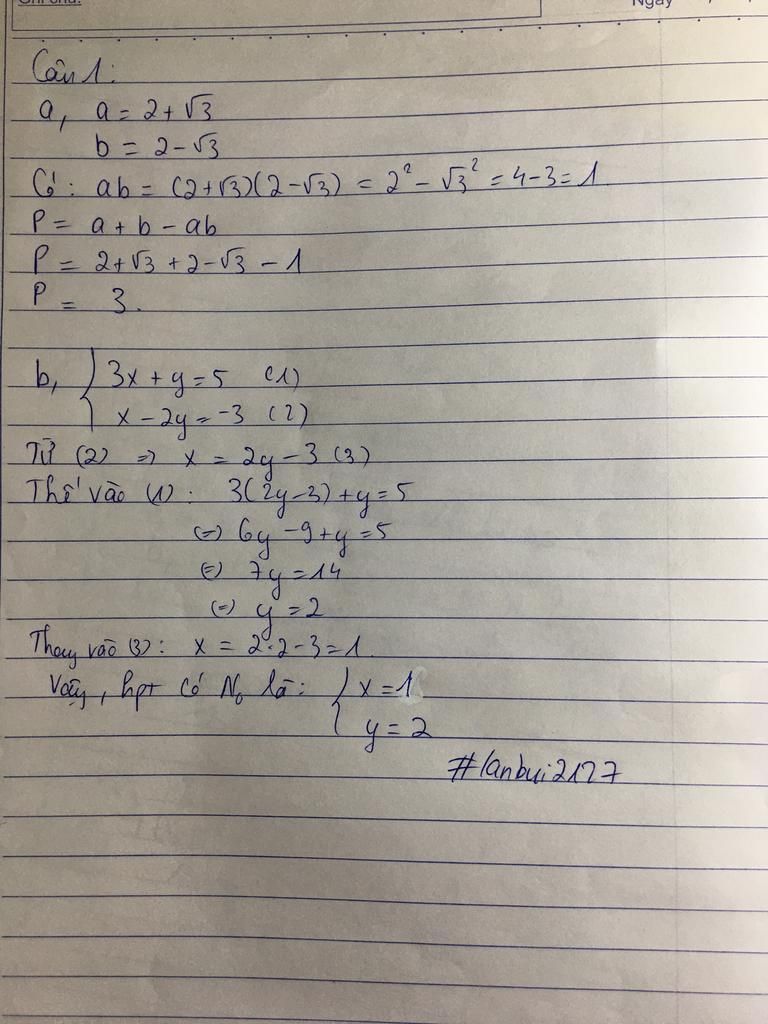 Ngày
Câu 1:
a, a = 2 + √3
b = 2 - √3
Có: ab = (2+√3)(2-√3) = 2² - √3² = 4-3 = 1
P = a + b - ab
P = 2+√3 + 2-√3 - 1
P = 3.
b, { 3x + y = 5 (1)
x - 2y = -3 (2)
Từ (2) => x = 2y - 3 (3)
Thế vào (1): 3(2y-3) + y = 5
(=) 6y - 9 + y = 5
(=) 7y = 14
(=) y = 2
Thay vào (3): x = 2.2-3 = 1.
Vậy, hpt có No là: { x = 1
y = 2
#lanbui2127